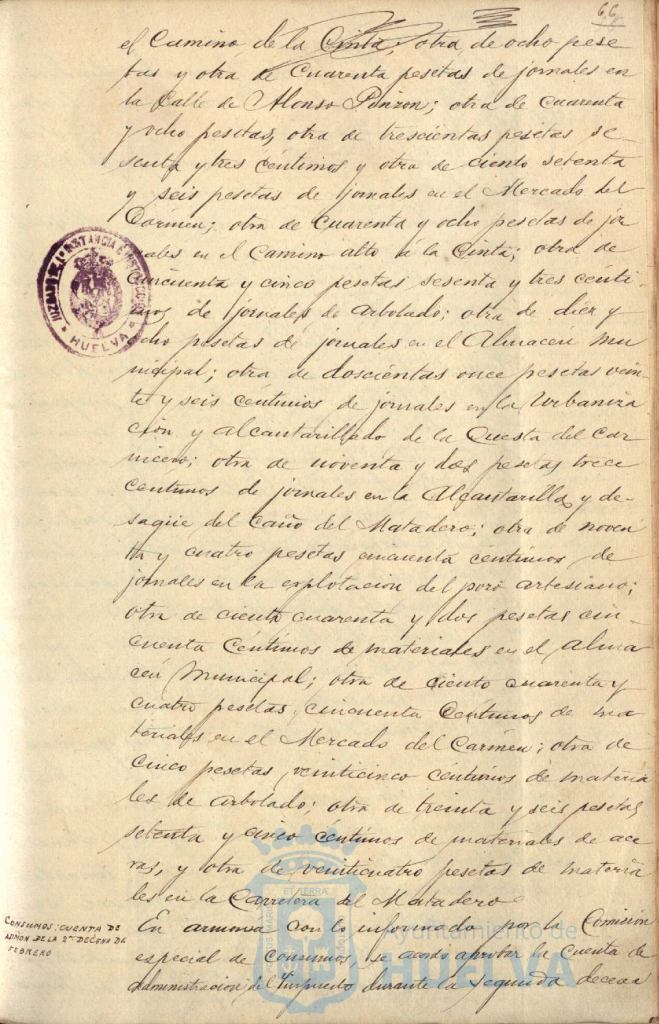 66
el Camino de la Cinta; otra de ocho pese-
tas y otra de Cuarenta pesetas de jornales en
la Calle de Alonso Pinzon; otra de cuarenta
y ocho pesetas, otra de trescientas pesetas se-
senta y tres céntimos y otra de ciento setenta
y seis pesetas de jornales en el Mercado del
Cármen; otra de cuarenta y ocho pesetas de jor-
nales en el Camino alto á la Cinta; otra de
Cincuenta y cinco pesetas sesenta y tres centi-
mos de jornales de Arbolado; otra de diez y
ocho pesetas de jornales en el Almacén Mu-
nicipal; otra de doscientas once pesetas vein-
te y seis céntimos de jornales en la Urbaniza
ción y alcantarillado de la Cuesta del Car-
nicero; otra de noventa y dos pesetas trece
centimos de jornales en la Alcantarilla y de-
sagüe del Caño del Matadero; otra de noven-
ta y cuatro pesetas cincuenta centimos de
jornales en la explotacion del pozo artesiano;
otra de ciento cuarenta y dos pesetas cin-
cuenta Céntimos de materiales en el alma
cén Municipal; otra de ciento cuarenta y
cuatro pesetas, cincuenta Centimos de ma-
teriales en el Mercado del Cármen; otra de
cinco pesetas veinticinco céntimos de materia-
les de arbolado; otra de treinta y seis pesetas
setenta y cinco céntimos de materiales de ace-
ras, y otra de veinticuatro pesetas de materia
les en la Carretera del Matadero
En armonia con lo informado por la Comision
especial de consumos, se acordó aprobar la Cuenta de
administracion del impuesto durante la segunda decena
CONSUMOS: CUENTA DE
ADMON DE LA 2ª DECENA DE
FEBRERO
JUZGADO DE 1ª INSTANCIA É INSTRUCCION
HUELVA
Ayuntamiento de
HUELVA